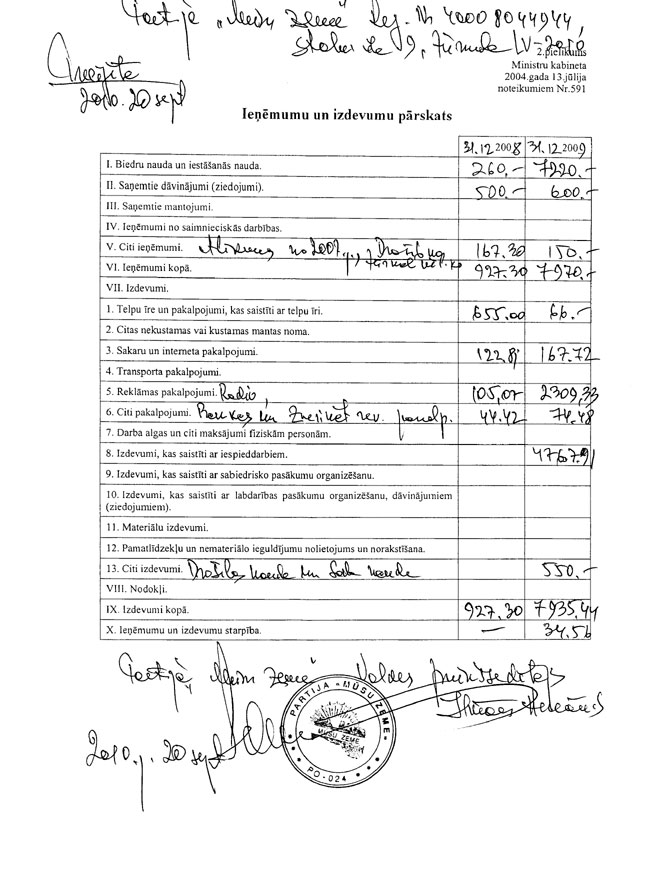 Partija "Mūsu Zeme" Reģ. Nr 40008044944,
LV-2010
2.pielikums
Ministru kabineta
2004.gada 13.jūlija
noteikumiem Nr.591
2010. 20 sept
Ieņēmumu un izdevumu pārskats
31.12.2008 31.12.2009
I. Biedru nauda un iestāšanās nauda. 260,- 7220.-
II. Saņemtie dāvinājumi (ziedojumi). 500,- 600.-
III. Saņemtie mantojumi.
IV. Ieņēmumi no saimnieciskās darbības.
V. Citi ieņēmumi. no 2007. 167.30 150.-
VI. Ieņēmumi kopā. 927.30 7970.-
VII. Izdevumi.
1. Telpu īre un pakalpojumi, kas saistīti ar telpu īri. 655.00 66.-
2. Citas nekustamas vai kustamas mantas noma.
3. Sakaru un interneta pakalpojumi. 122.81 167.72
4. Transporta pakalpojumi.
5. Reklāmas pakalpojumi. Radio, 105,07 2309,33
6. Citi pakalpojumi. Bankas un 44.42 74.48
7. Darba algas un citi maksājumi fiziskām personām.
8. Izdevumi, kas saistīti ar iespieddarbiem. 4767.91
9. Izdevumi, kas saistīti ar sabiedrisko pasākumu organizēšanu.
10. Izdevumi, kas saistīti ar labdarības pasākumu organizēšanu, dāvinājumiem
(ziedojumiem).
11. Materiālu izdevumi.
12. Pamatlīdzekļu un nemateriālo ieguldījumu nolietojums un norakstīšana.
13. Citi izdevumi. nauda un nauda 550.-
VIII. Nodokļi.
IX. Izdevumi kopā. 927.30 7935,44
X. Ieņēmumu un izdevumu starpība. — 34.56
Partija "Mūsu Zeme" Valdes priekšsēdētājs
PARTIJA "MŪSU ZEME"
MŪSU ZEME
PO-024
2010.g. 20 sept